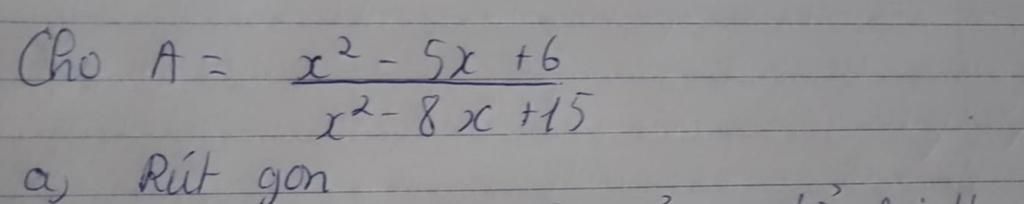 Cho A = \frac{x^2 - 5x + 6}{x^2 - 8x + 15}
a, Rút gọn